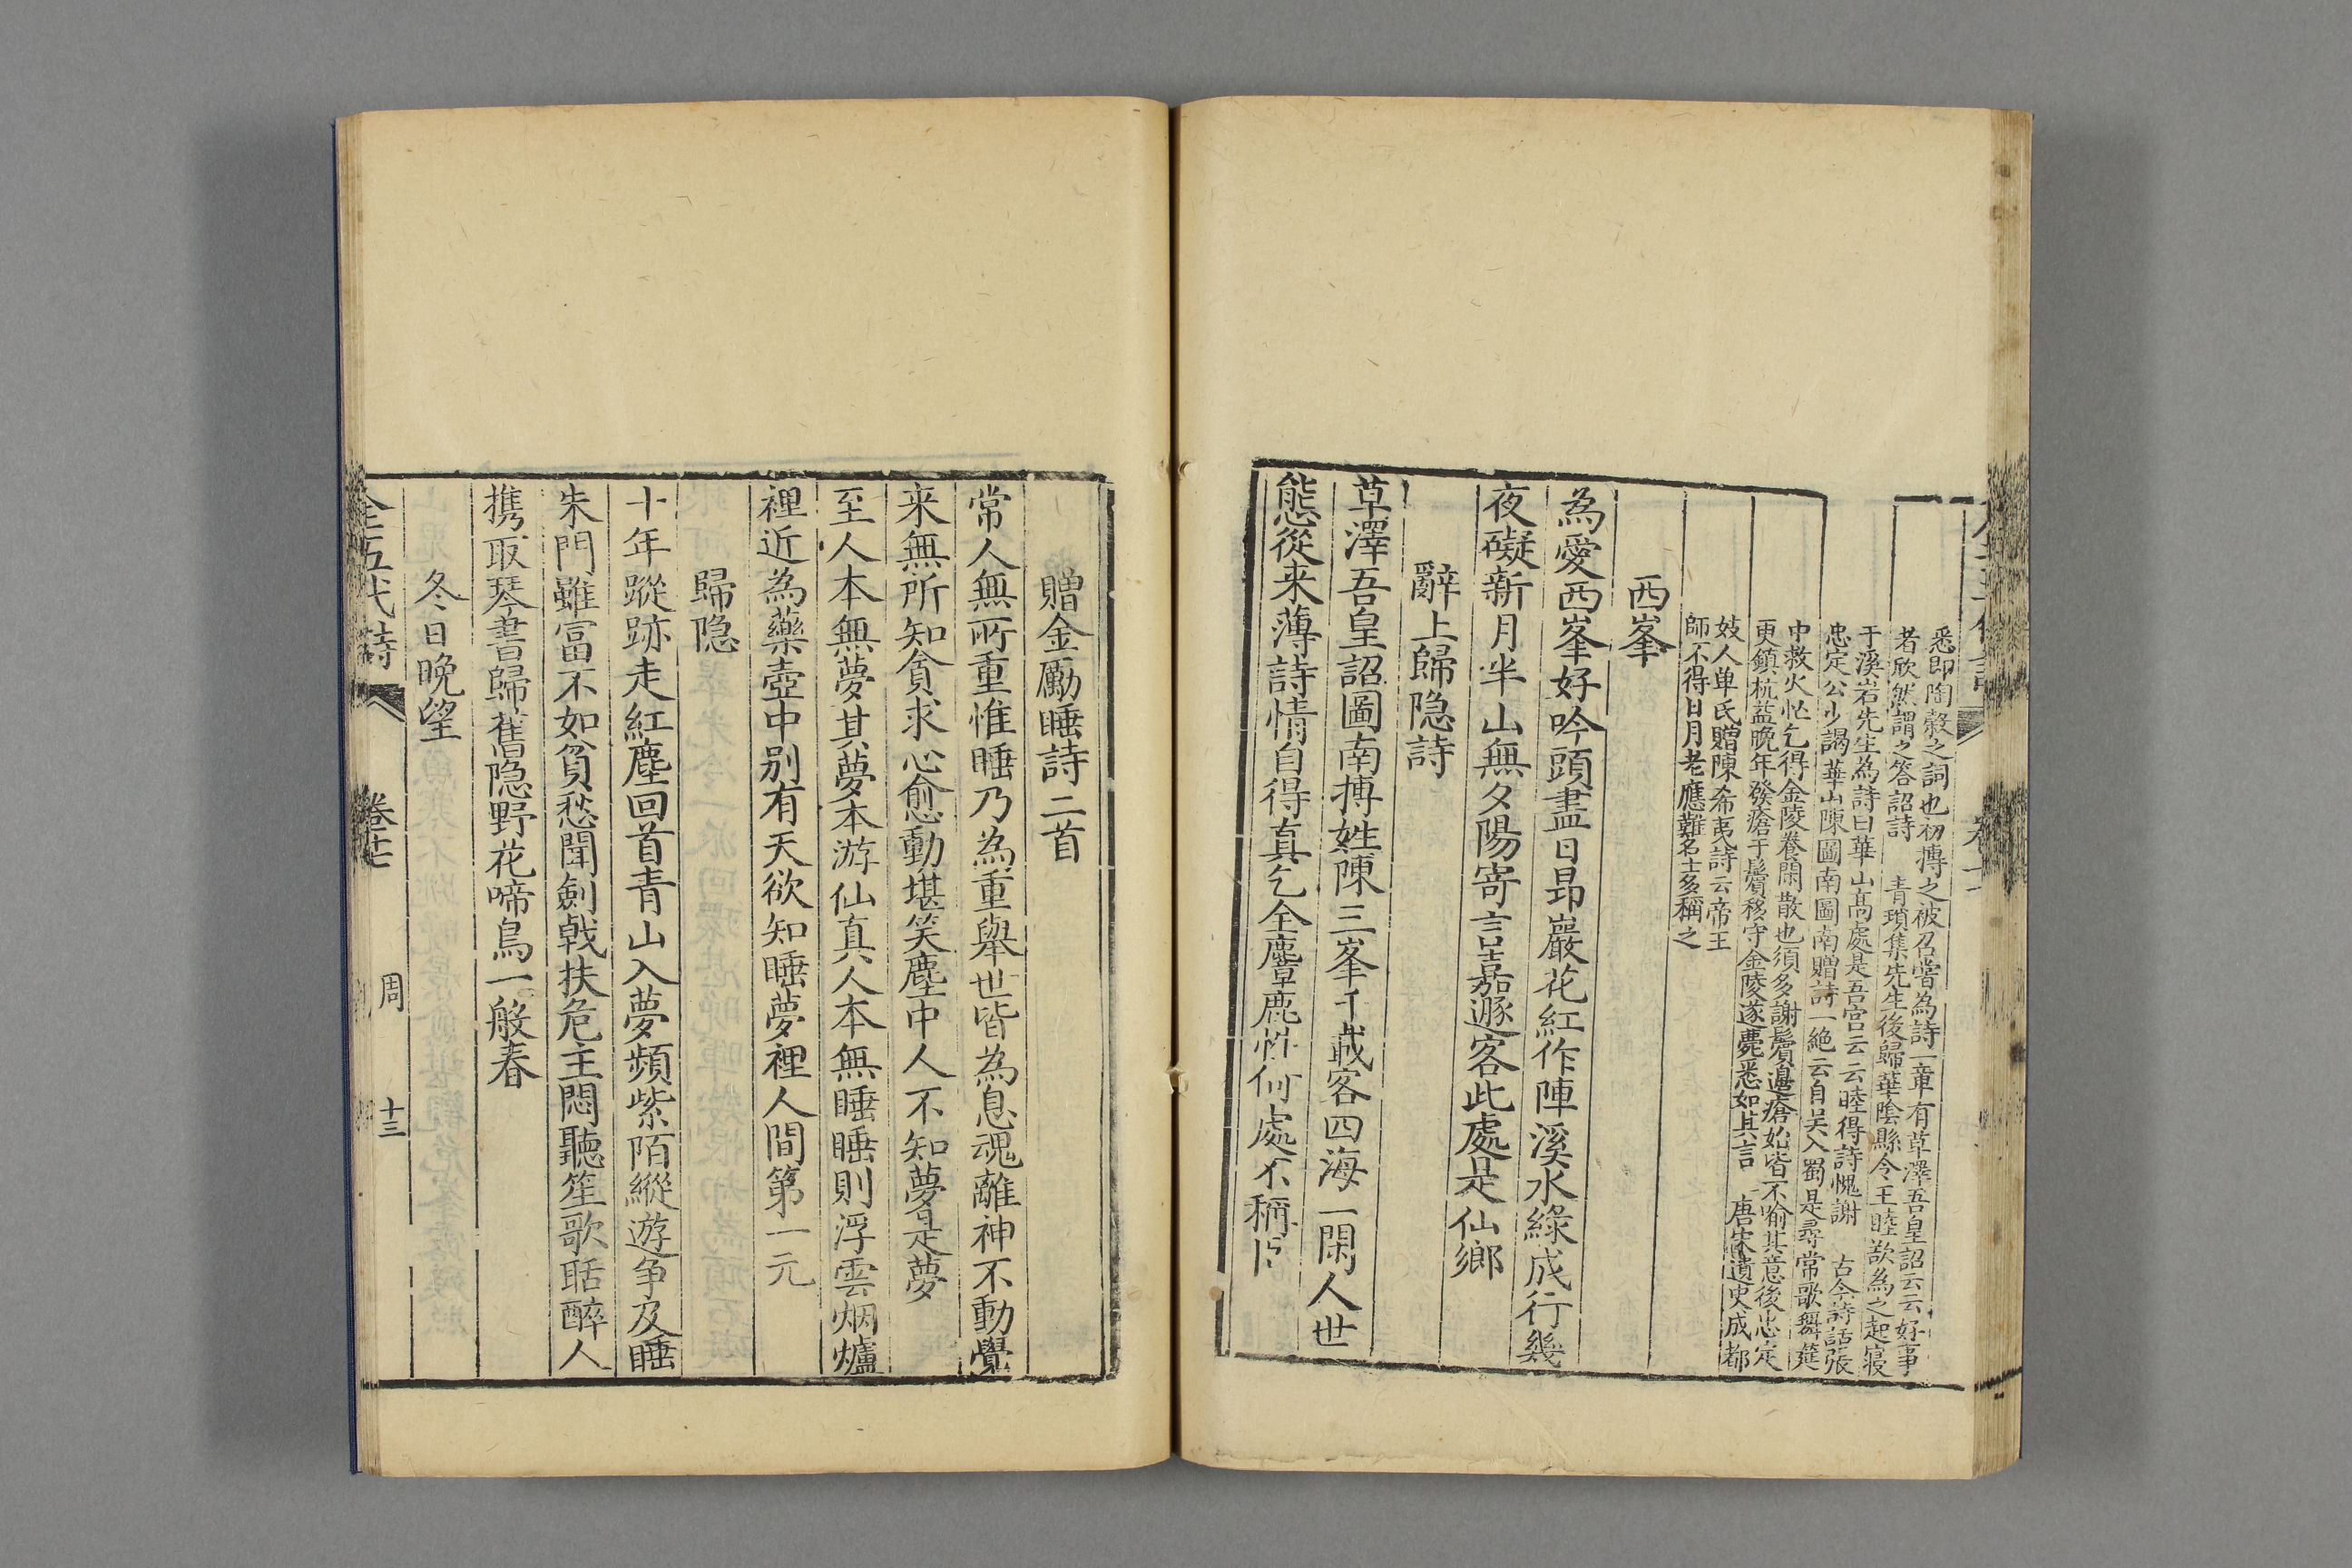 悉即陶穀之詞也初摶之被召嘗為詩一章有草澤吾皇詔云云好事
者欣然謂之答詔詩　青瑣集先生後歸華陰縣令王睦欲為之起寢
于溪岩先生為詩曰華山高處是吾宮云云睦得詩愧謝　古今詩話張
忠定公少謁華山陳圖南圖南贈詩一絕云自吴入蜀是尋常歌舞筵
中救火忙乞得金陵養閑散也須多謝鬢邊瘡始皆不喻其意後忠定
更鎮杭益晚年發瘡于鬢移守金陵遂薨悉如其言　唐宋遺史成都
妓人单氏贈陳希夷詩云帝王
師不得日月老應難名士多稱之
西峯
為愛西峯好吟頭盡日昂巖花紅作陣溪水綠成行幾
夜礙新月半山無夕陽寄言嘉遯客此處是仙鄉
辭上歸隐詩
草澤吾皇詔圖南摶姓陳三峯千載客四海一閑人世
態從来薄詩情自得真乞全麞鹿性何處不稱臣
贈金勵睡詩二首
常人無所重惟睡乃為重舉世皆為息魂離神不動覺
来無所知貪求心愈動堪笑塵中人不知夢是夢
至人本無夢其夢本游仙真人本無睡睡則浮雲烟爐
裡近為藥壺中别有天欲知睡夢裡人間第一元
歸隐
十年蹤跡走紅塵回首青山入夢頻紫陌縱遊争及睡
朱門雖富不如貧愁聞劍戟扶危主悶聽笙歌聒醉人
携取琴書歸舊隐野花啼鳥一般春
冬日晚望
全五代詩　卷十　周　十三